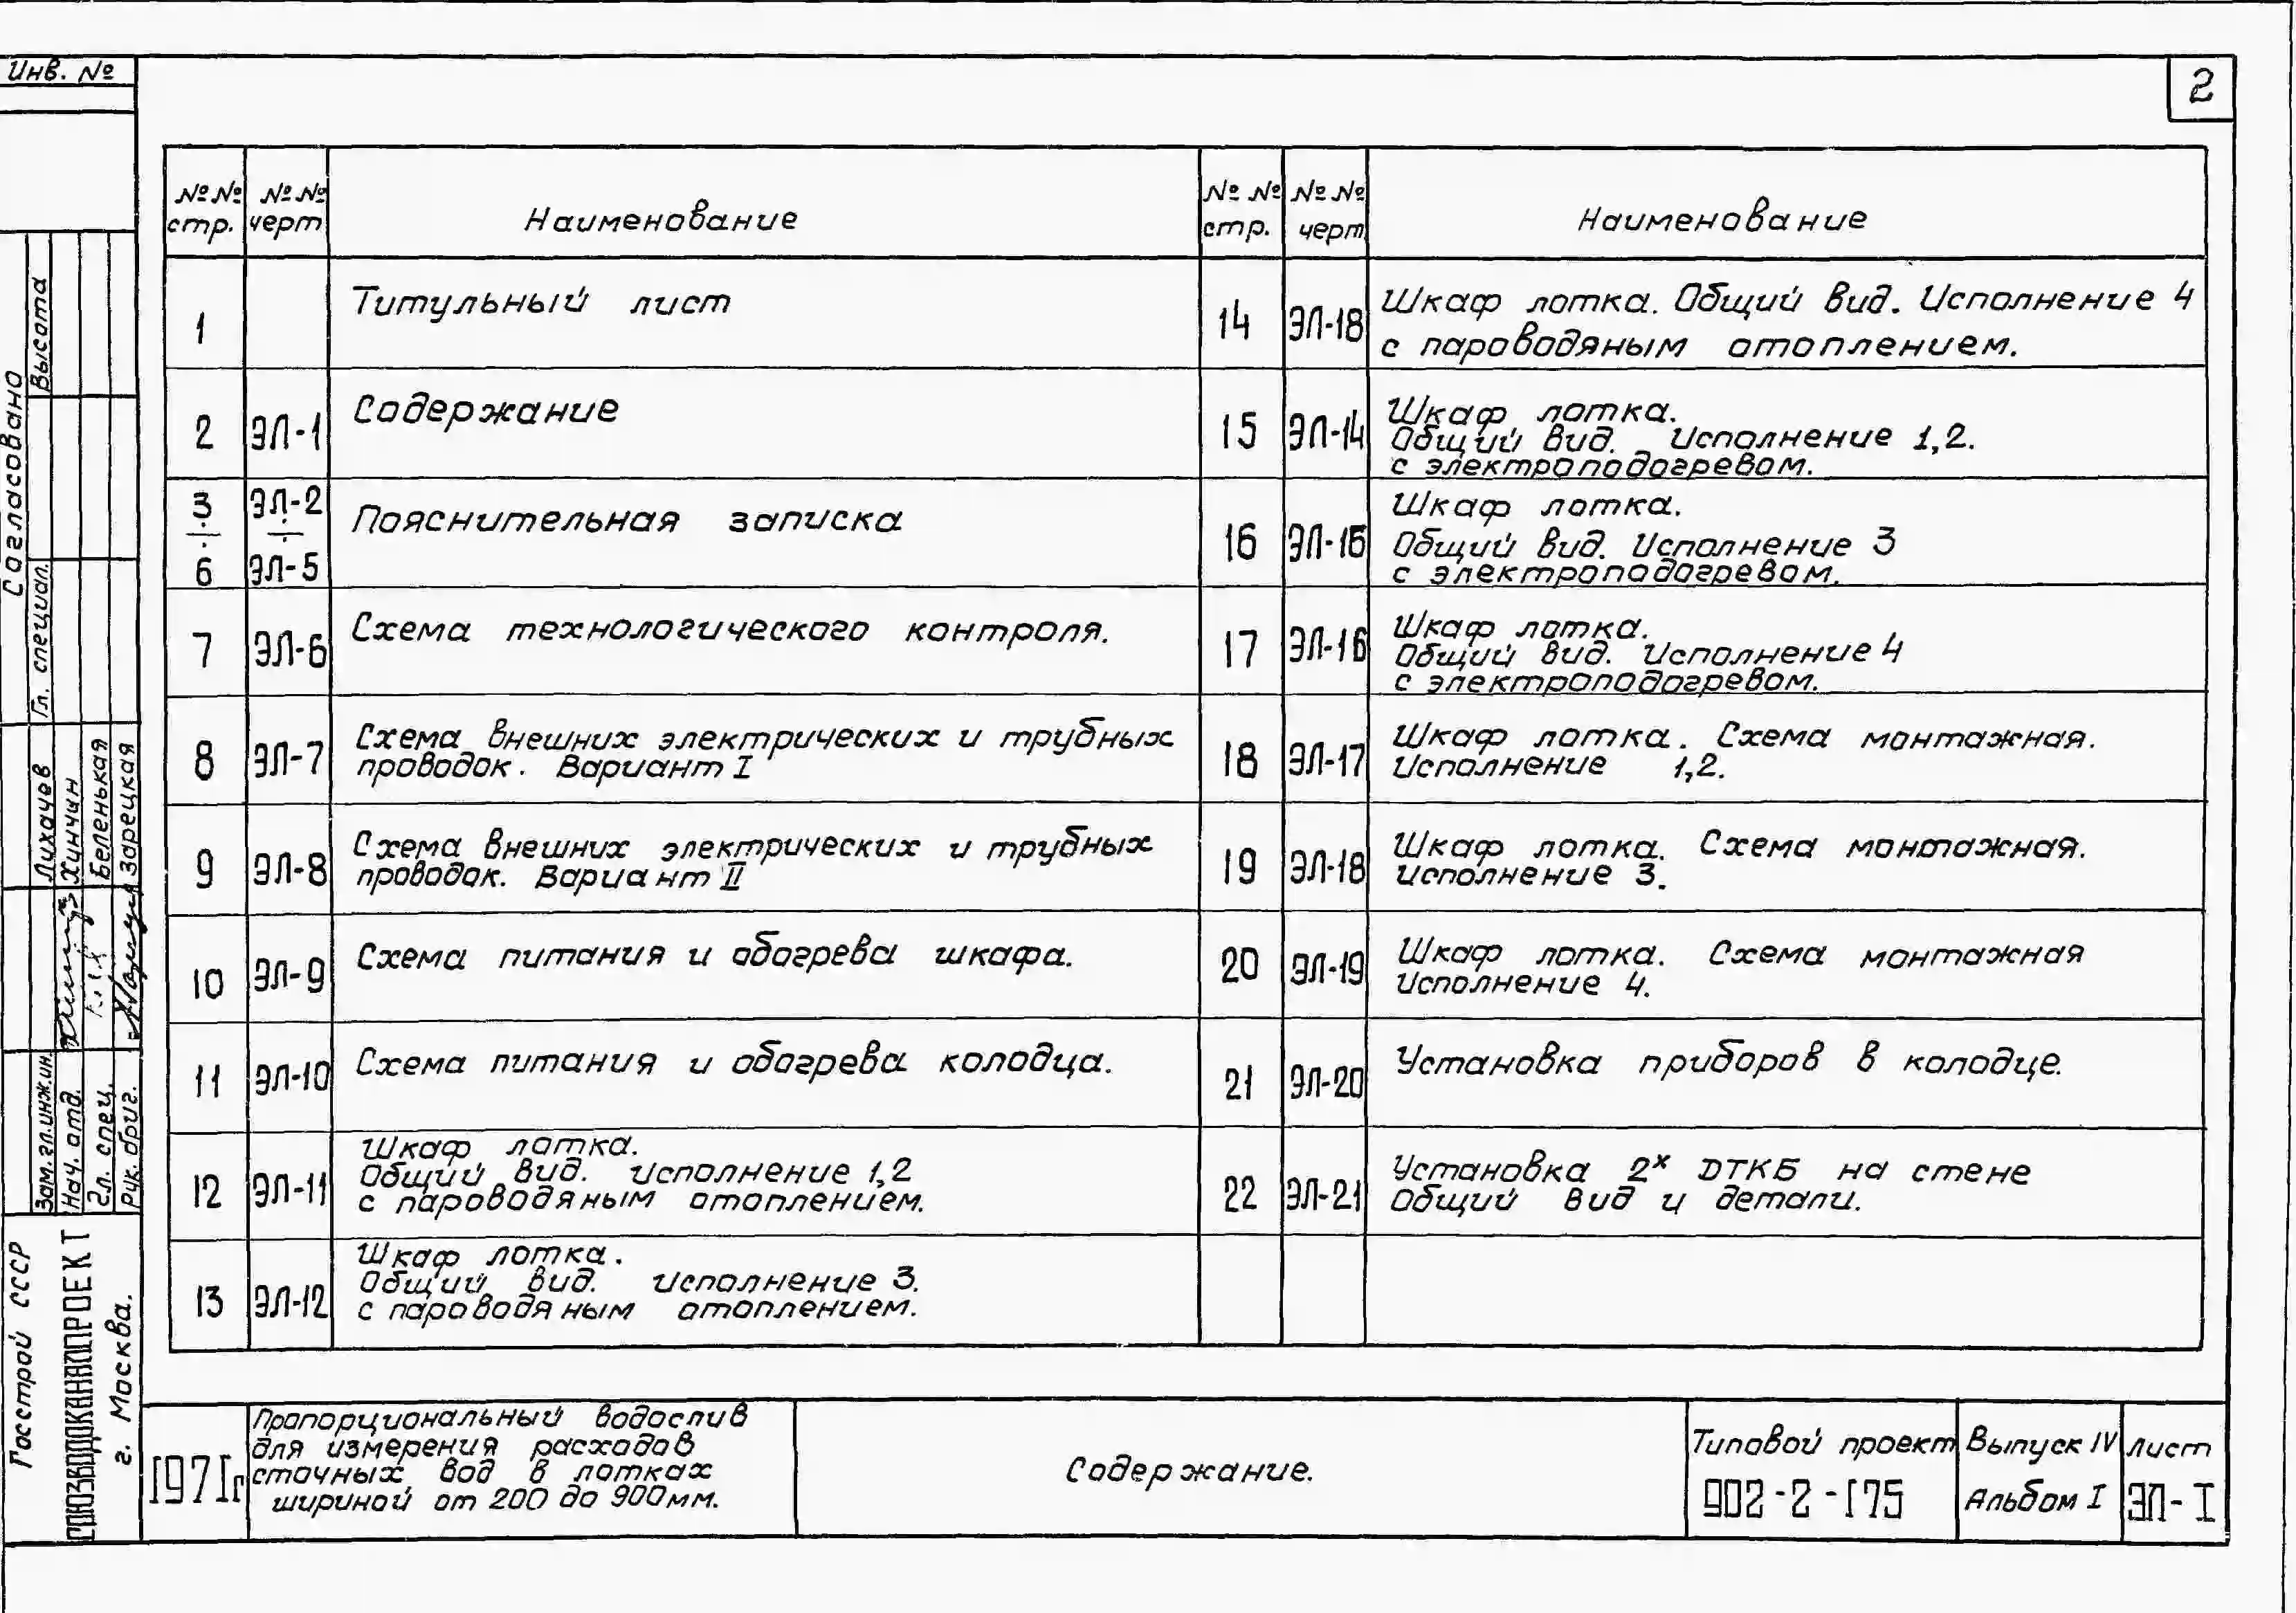 Инв. №
2
№№ стр.
№№ черт.
Наименование
№№ стр.
№№ черт.
Наименование
1
Титульный лист
2
ЭЛ-1
Содержание
3
÷
6
ЭЛ-2
÷
ЭЛ-5
Пояснительная записка
7
ЭЛ-6
Схема технологического контроля.
8
ЭЛ-7
Схема внешних электрических и трубных
проводок. Вариант I
9
ЭЛ-8
Схема внешних электрических и трубных
проводок. Вариант II
10
ЭЛ-9
Схема питания и обогрева шкафа.
11
ЭЛ-10
Схема питания и обогрева колодца.
12
ЭЛ-11
Шкаф лотка.
Общий вид. Исполнение 1,2
с пароводяным отоплением.
13
ЭЛ-12
Шкаф лотка.
Общий вид. Исполнение 3.
с пароводяным отоплением.
14
ЭЛ-18
Шкаф лотка. Общий вид. Исполнение 4
с пароводяным отоплением.
15
ЭЛ-14
Шкаф лотка.
Общий вид. Исполнение 1,2.
с электроподогревом.
16
Шкаф лотка.
Общий вид. Исполнение 3
с электроподогревом.
17
ЭЛ-16
Шкаф лотка.
Общий вид. Исполнение 4
с электроподогревом.
18
ЭЛ-17
Шкаф лотка. Схема монтажная.
Исполнение 1,2.
19
ЭЛ-18
Шкаф лотка. Схема монтажная.
Исполнение 3.
20
ЭЛ-19
Шкаф лотка. Схема монтажная
Исполнение 4.
21
ЭЛ-20
Установка приборов в колодце.
22
ЭЛ-21
Установка 2х ДТКБ на стене
Общий вид и детали.
Согласовано
Высота
Гл. специал.
Лихачев
Хинчин
Беленькая
Зарецкая
Зам.гл.инж.ин.
Нач. отд.
Гл. спец.
Рук. бриг.
Госстрой СССР
СОЮЗВОДОКАНАЛПРОЕКТ
г. Москва.
1971г
Пропорциональный водослив
для измерения расходов
сточных вод в лотках
шириной от 200 до 900мм.
Содержание.
Типовой проект
902-2-175
Выпуск IV
Альбом I
Лист
ЭЛ-I